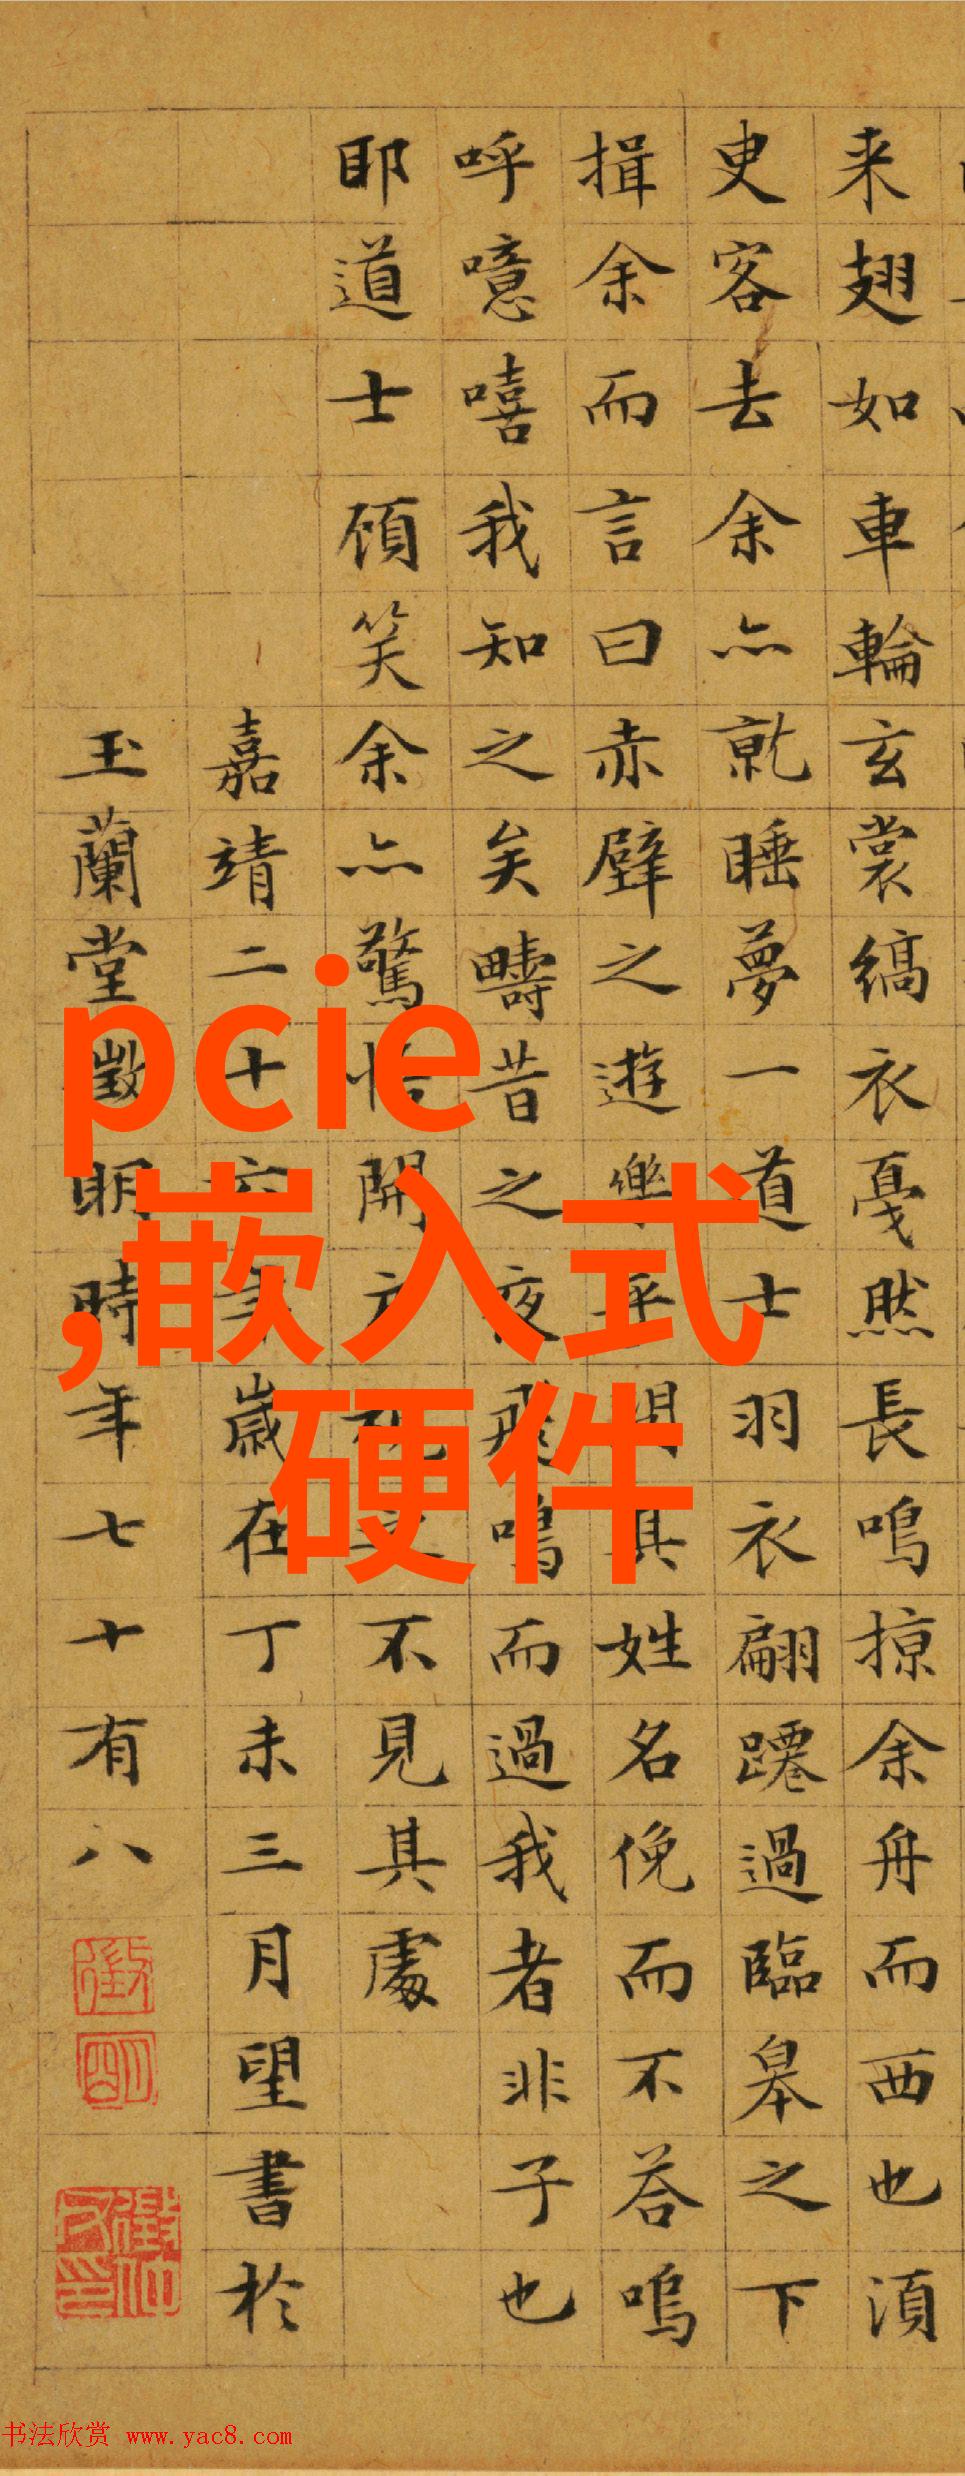 来翅如車輪玄裳縞衣戛然長鳴掠余舟而西也須
臾客去余亦就睡夢一道士羽衣翩躚過臨皋之下
揖余而言曰赤壁之遊樂乎問其姓名俛而不答嗚
呼噫嘻我知之矣疇昔之夜飛鳴而過我者非子也
耶道士顧笑余亦驚悟開户視之不見其處
嘉靖二十六年歲在丁未三月望書於
玉蘭堂徵明時年七十有八
徵
明
pcie
,嵌入式
硬件
书法欣赏 www.yac8.com